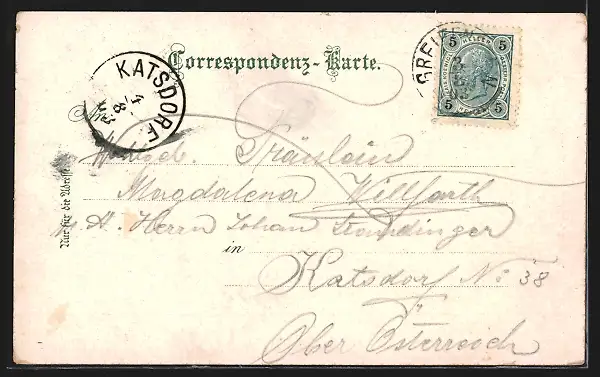 Correspondenz-Karte.
KATSDORF
4
8
5 HELLER 5
5 5
Nur für die Adresse
Fräulein
Magdalena Willfarth
Herrn Johan
in
Katsdorf No 38
Ober Österreich